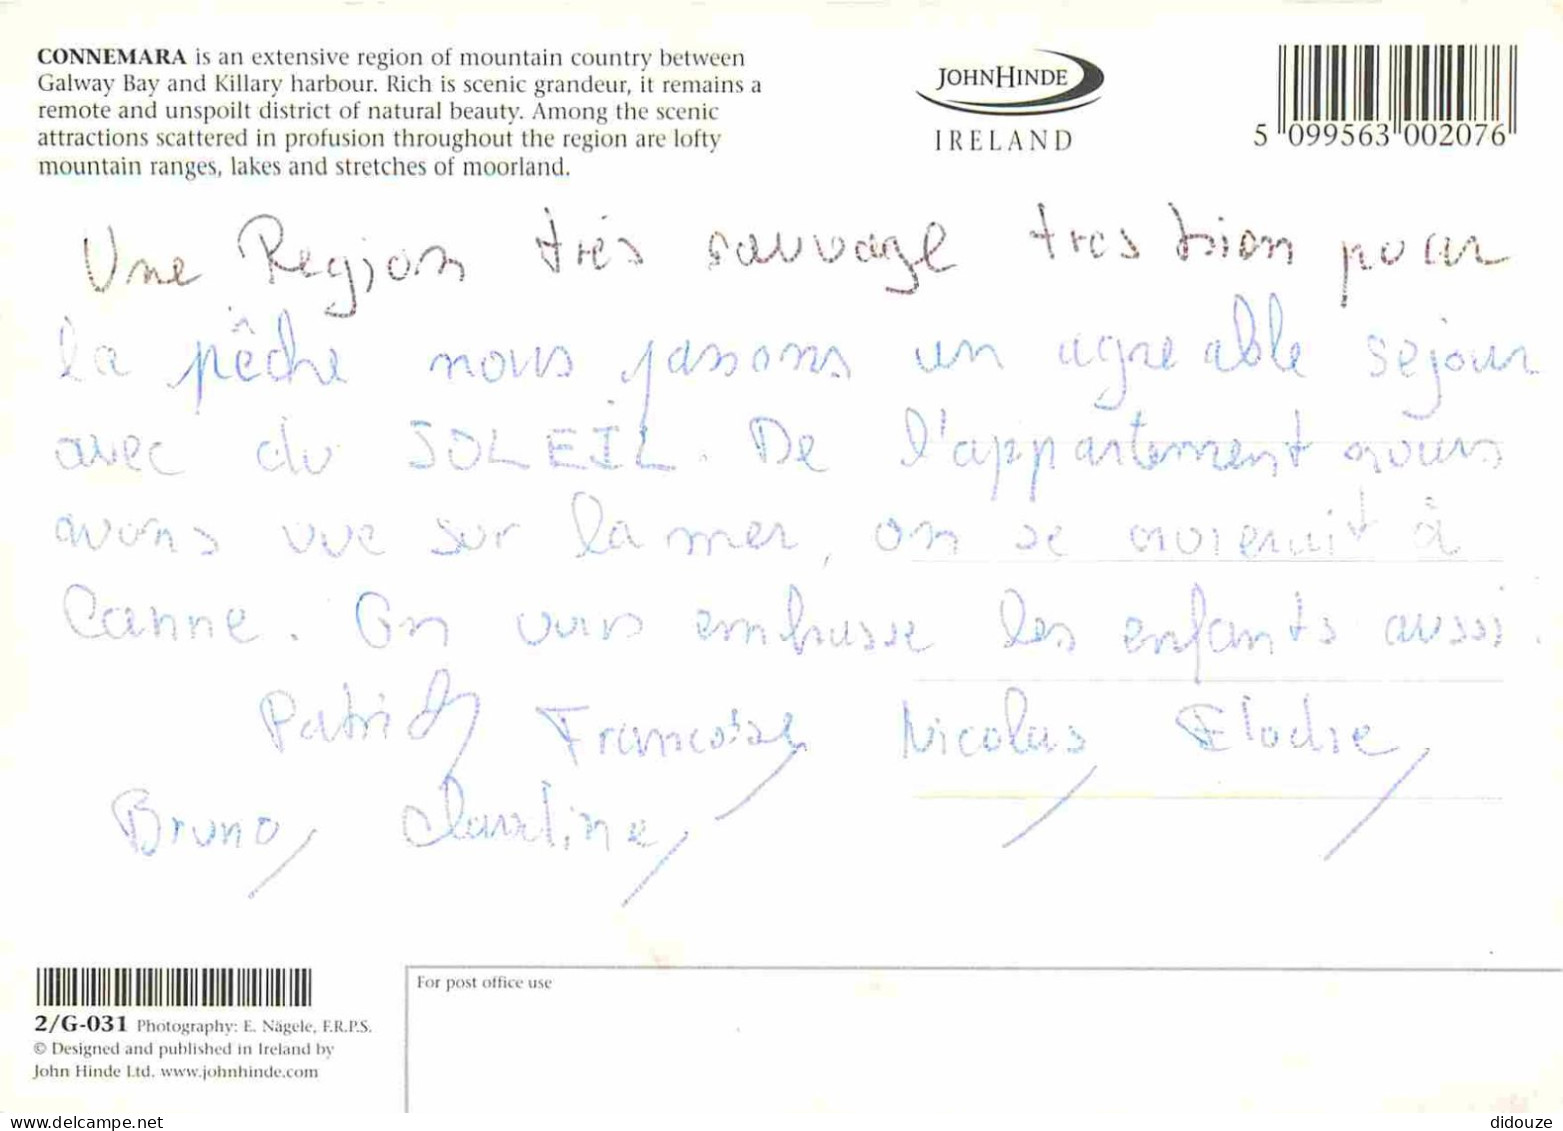 CONNEMARA is an extensive region of mountain country between
Galway Bay and Killary harbour. Rich is scenic grandeur, it remains a
remote and unspoilt district of natural beauty. Among the scenic
attractions scattered in profusion throughout the region are lofty
mountain ranges, lakes and stretches of moorland.
JOHNHINDE
IRELAND
5 099563 002076
Une Region très sauvage tres bien pour
la pêche nous passons un agreable sejour
avec du SOLEIL. De l'appartement nous
avons vue sur la mer, on se croierait à
Canne. On vous embrasse les enfants aussi.
Patrick Francoise, Nicolas, Elodie,
Bruno,
2/G-031 Photography: E. Nägele, F.R.P.S.
© Designed and published in Ireland by
John Hinde Ltd. www.johnhinde.com
For post office use
www.delcampe.net
didouze